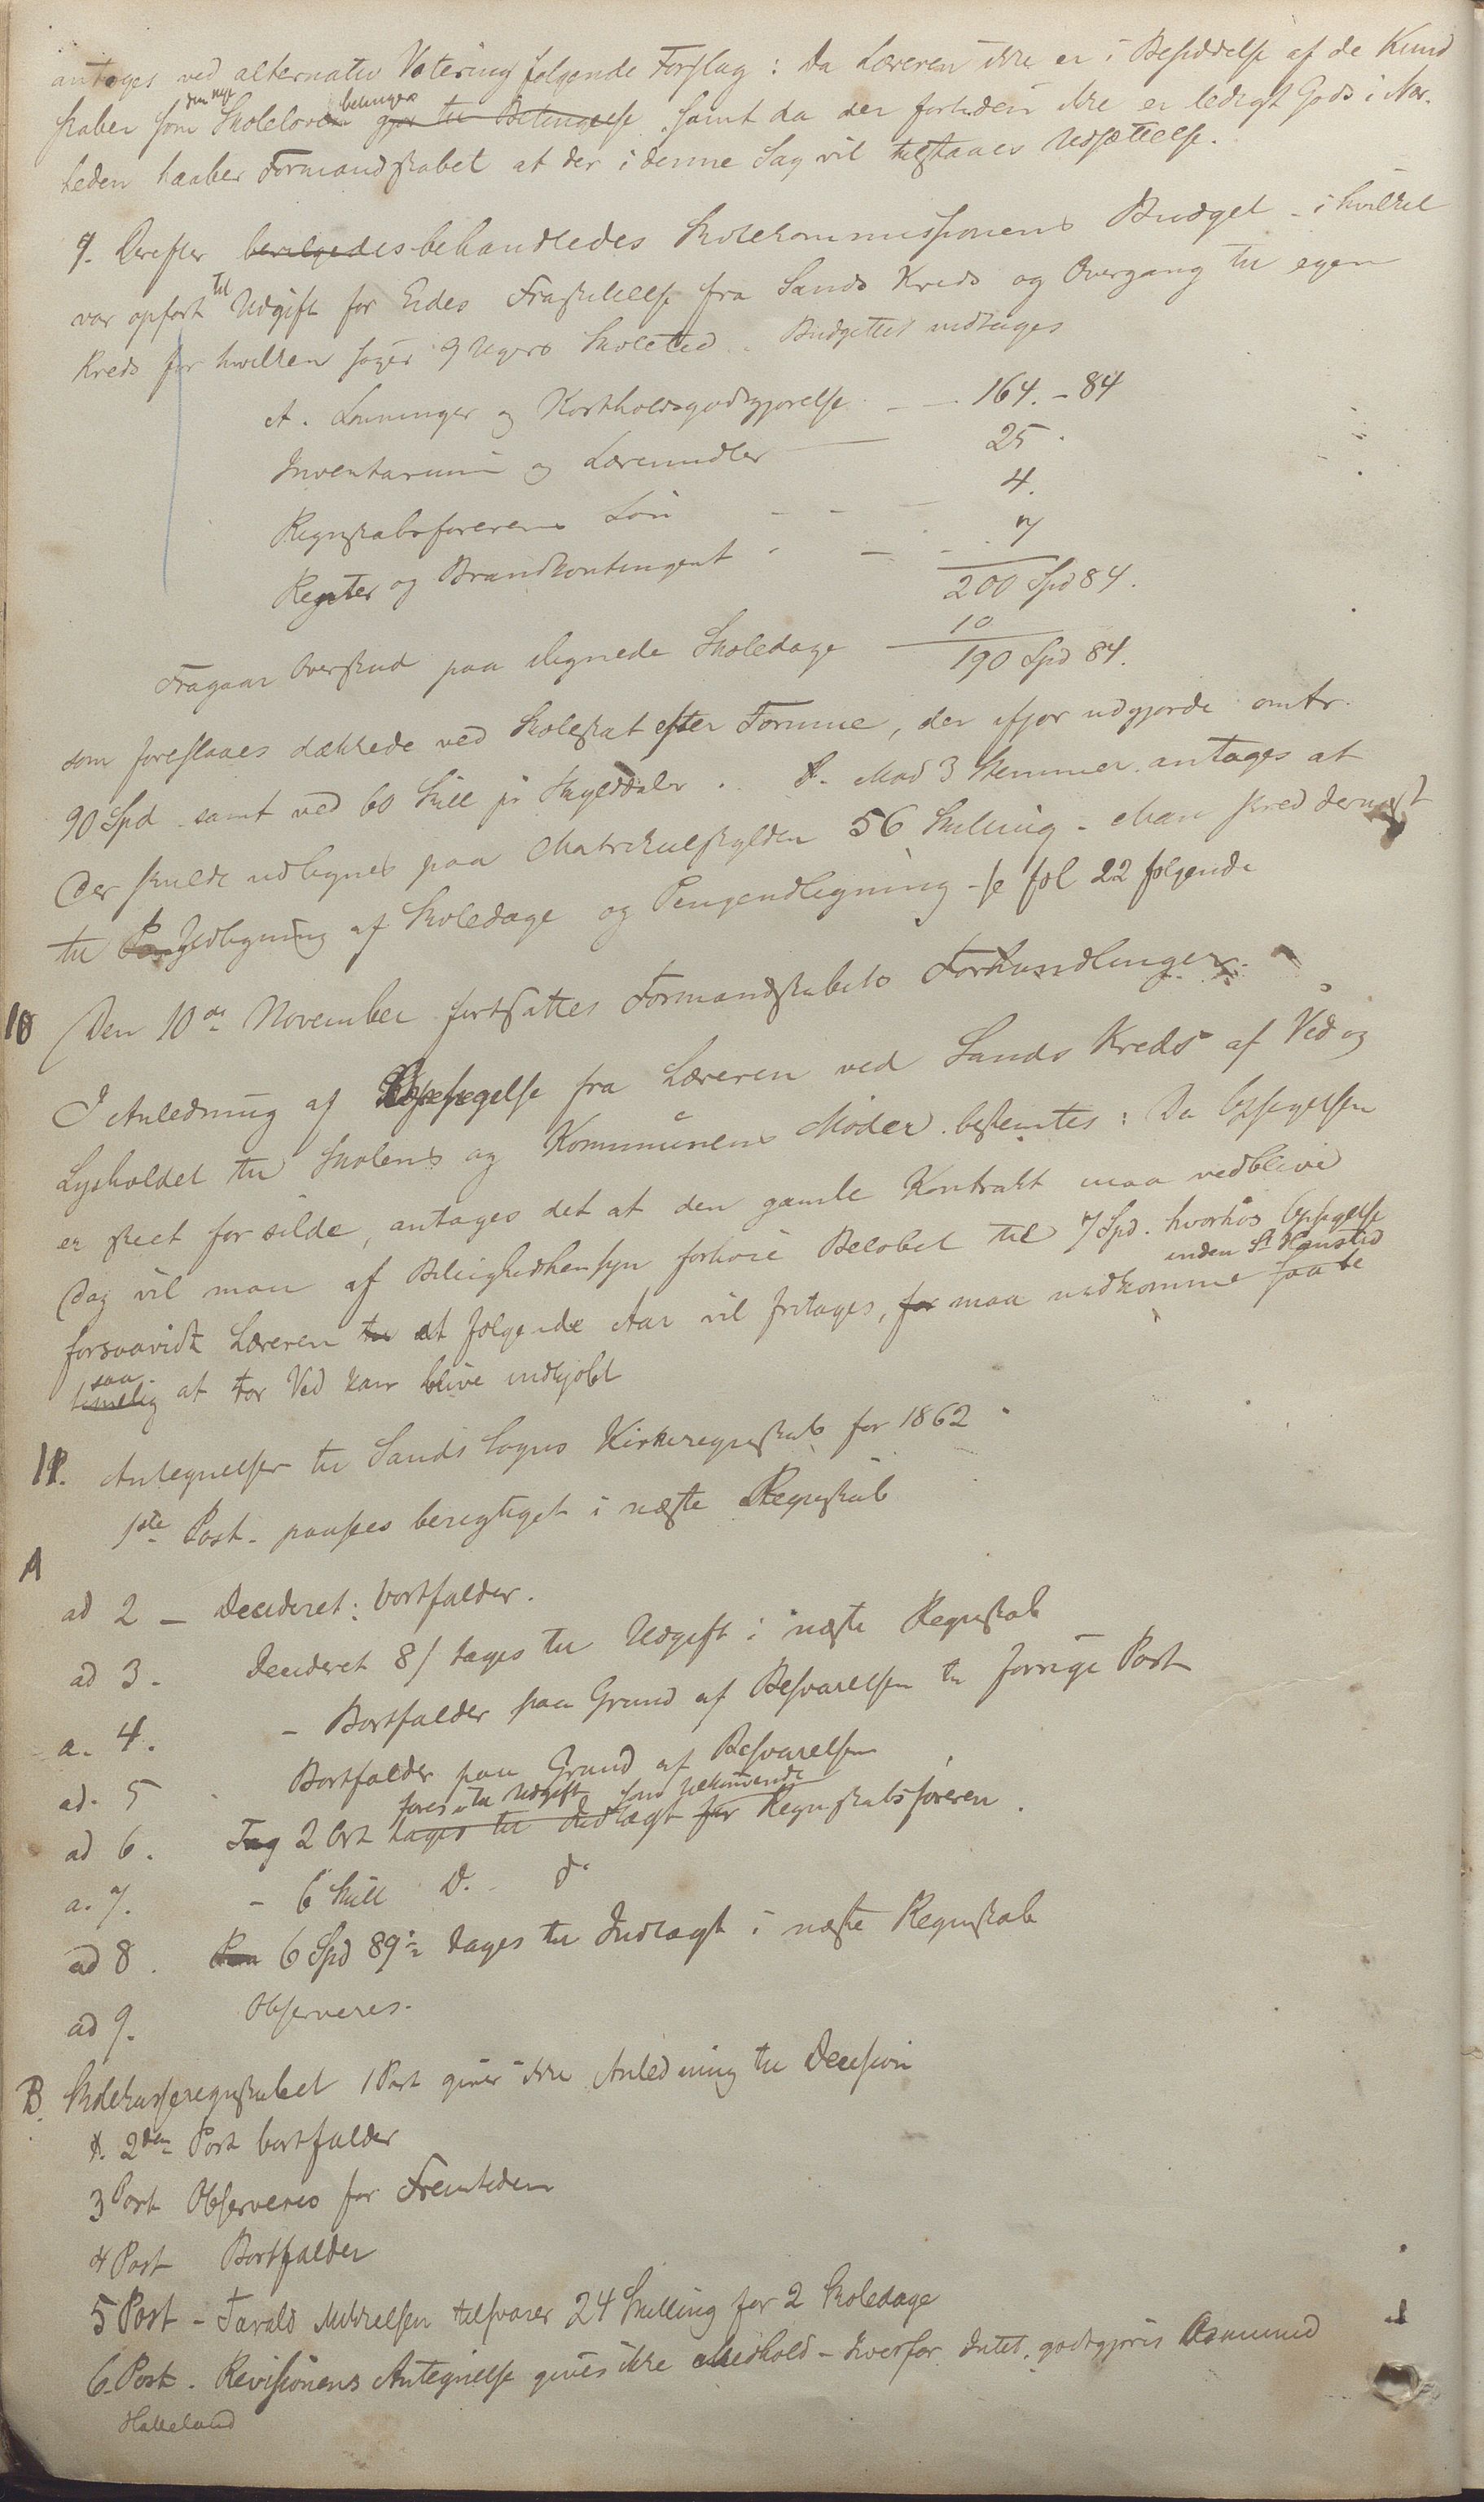 antages ved alternativ Votering følgende Forslag: Da Læreren ikke er i Besiddelse af de Kund
skaber som den nye Skolelov betinger gjør til Betingelse samt da der fortiden ikke er ledigt Gods i Nær-
heden haaber Formandskabet at der i denne Sag vil tilstaaes Udsættelse.
9. Derefter bevilgedes behandledes Skolekommissionens Budget - i hvilket
var opført til Udgift for Eides Fraskillelse fra Sands Kreds og Overgang til egen
Kreds for hvilken søges 9 Ugers Skoletid. Budgettet vedtages
A. Lønninger og Kostholdsgodtgjørelse - - 164. - 84
Inventarium og Læremidler - 25.
Regnskabsførerens Løn - - - 4.
Renter og Brandkontingent - - - 7
200 Spd 84.
Fragaar Overskud paa ilignede Skoledage 10
190 Spd 84.
som foreslaaes dækkede ved Skoleskat efter Formue, der ifjor udgjorde omtr.
90 Spd samt ved 60 Skill pr Skylddaler. Mod 3 Stemmer antages at
Der skulde udlignes paa Matrikulskylden 56 Skilling - Man skred dernæst
til Udligning af Skoledage og Pengeudligning - se fol 22 følgende
10 Den 10de November fortsattes Formandskabets Forhandlinger.
I Anledning af Opsigelse fra Læreren ved Sands Kreds af Ved og
Lysholdet til Skolens og Kommunens Møder bestemtes: Da Opsigelsen
er skeet for silde, antages det at den gamle Kontrakt maa vedblive
Dog vil man af Billighedshensyn forhøie Beløbet til 7 Spd. hvorhos Opsigelse
forsaavidt Læreren til at følgende Aar vil fritages, for maa indkomme inden St Hanstid saa be
timelig saa at tør Ved kan blive indkjøbt
11. Antegnelser til Sands Sogns Kirkeregnskab for 1862
1ste Post - paasees berigtiget i næste Regnskab
A
ad 2 - Decideret: bortfalder.
ad 3. Decideret 8/ tages til Udgift i næste Regnskab
a. 4. - Bortfalder paa Grund af Besvarelsen til forrige Post
ad. 5 Bortfalder paa Grund af Besvarelsen
ad 6. Tag 2 Ort føres til Udgift som vedkommende tages til Indtægt for Regnskabsføreren.
a. 7. - 6 Skill D. do
ad 8. 6 Spd 89 tages til Indtægt i næste Regnskab
ad 9. Observeres.
B. Skolekasseregnskabet 1 Post giver ikke Anledning til Decision
2den Post bortfalder
3 Post Observeres for Fremtiden
4 Post Bortfalder
5 Post - Tarald Mikkelsen tilsvarer 24 Skilling for 2 Skoledage
6. Post. Revisionens Antegnelse gives ikke Medhold - hvorfor Intet godtgjøres Asmund
Halleland